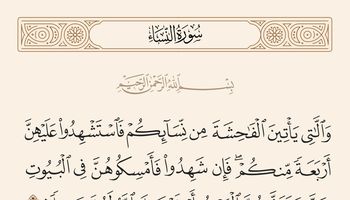 سُورَةُ النِّسَاءِ
بِسْمِ اللَّهِ الرَّحْمَٰنِ الرَّحِيمِ
وَالَّٰتِي يَأْتِينَ الْفَاحِشَةَ مِن نِّسَآئِكُمْ فَاسْتَشْهِدُوا عَلَيْهِنَّ
أَرْبَعَةً مِّنكُمْ ۖ فَإِن شَهِدُوا فَأَمْسِكُوهُنَّ فِي الْبُيُوتِ